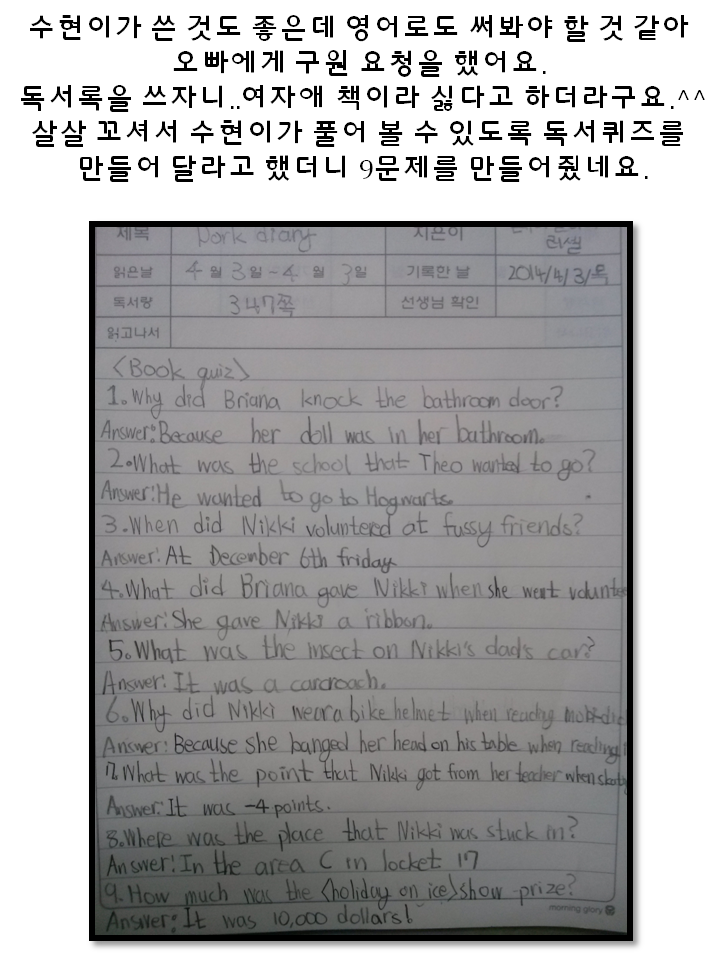 수현이가 쓴 것도 좋은데 영어로도 써봐야 할 것 같아
오빠에게 구원 요청을 했어요.
독서록을 쓰자니..여자애 책이라 싫다고 하더라구요.^^
살살 꼬셔서 수현이가 풀어 볼 수 있도록 독서퀴즈를
만들어 달라고 했더니 9문제를 만들어줬네요.
제목 Dork diary 지은이
러셀
읽은날 4월 3일-4월 3일 기록한 날 2014/4/3/목
독서량 347쪽 선생님 확인
읽고나서
<Book quiz>
1. Why did Briana knock the bathroom door?
Answer: Because her doll was in her bathroom.
2. What was the school that Theo wanted to go?
Answer: He wanted to go to Hogwarts.
3. When did Nikki voluntered at fussy friends?
Answer: At December 6th friday
4. What did Briana gave Nikki when she went volunte
Answer: She gave Nikki a ribbon.
5. What was the insect on Nikki's dad's car?
Answer: It was a carcroach.
6. Why did Nikki wear a bike helmet when reading mobi-dic
Answer: Because she banged her head on his table when reading
7. What was the point that Nikki got from her teacher when skati
Answer: It was -4 points.
8. Where was the place that Nikki was stuck in?
Answer: In the area C in locket 17
9. How much was the <holiday on ice> show prize?
morning glory
Answer: It was 10,000 dollars!